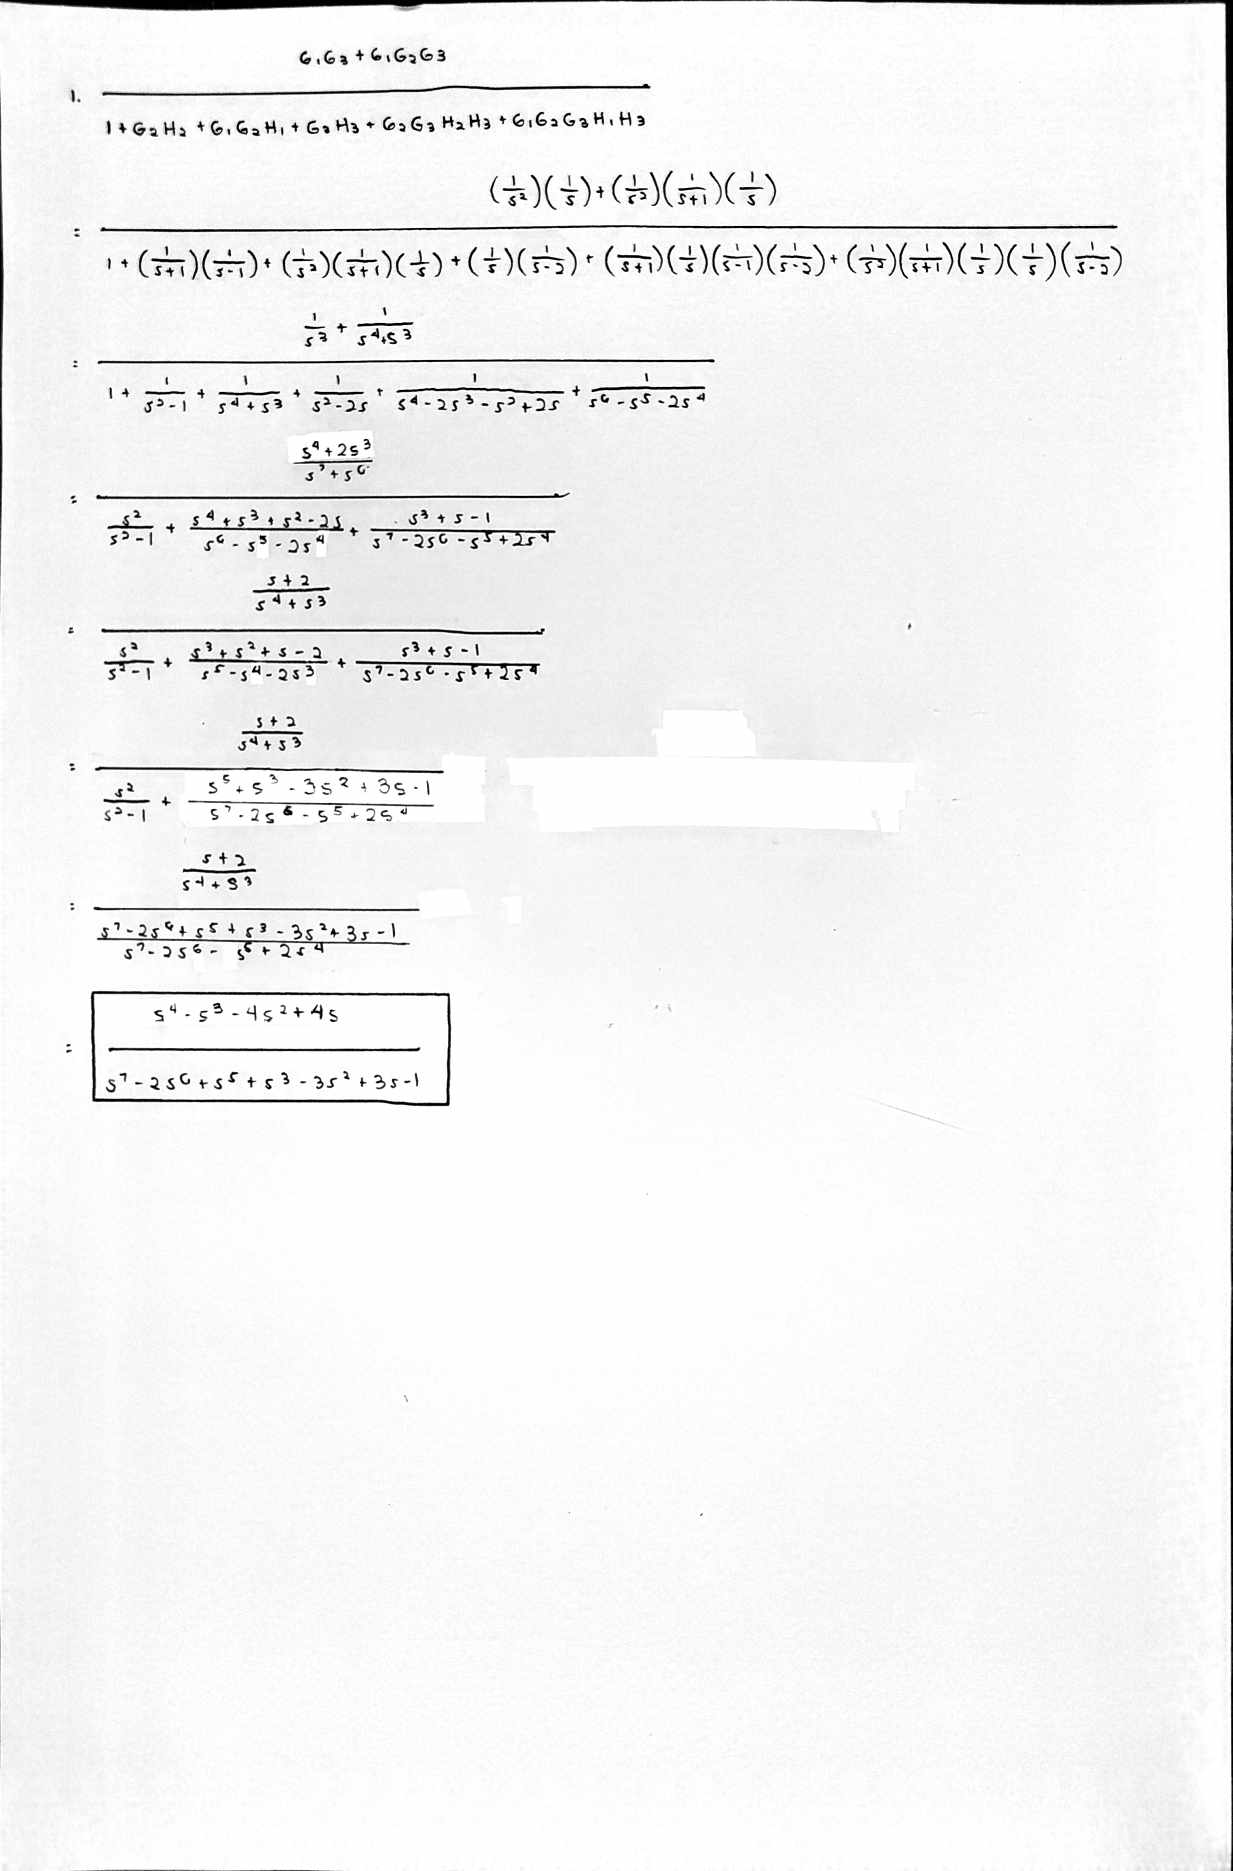 G₁G₃ + G₁G₂G₃
1. ―――
1 + G₂H₂ + G₁G₂H₁ + G₃H₃ + G₂G₃H₂H₃ + G₁G₂G₃H₁H₃
(1/s²)(1/s) + (1/s²)(1/s+1)(1/s)
= ―――
1 + (1/s+1)(1/s-1) + (1/s²)(1/s+1)(1/s) + (1/s)(1/s-2) + (1/s+1)(1/s)(1/s-1)(1/s-2) + (1/s²)(1/s+1)(1/s)(1/s)(1/s-2)
1/s³ + 1/s⁴+s³
= ―――
1 + 1/s²-1 + 1/s⁴+s³ + 1/s²-2s + 1/s⁴-2s³-s²+2s + 1/s⁶-s⁵-2s⁴
s⁴+2s³/s⁷+s⁶
= ―――
s²/s²-1 + s⁴+s³+s²-2s/s⁶-s⁵-2s⁴ + s³+s-1/s⁷-2s⁶-s⁵+2s⁴
s+2/s⁴+s³
= ―――
s²/s²-1 + s³+s²+s-2/s⁵-s⁴-2s³ + s³+s-1/s⁷-2s⁶-s⁵+2s⁴
s+2/s⁴+s³
= ―――
s²/s²-1 + s⁵+s³-3s²+3s-1/s⁷-2s⁶-s⁵+2s⁴
s+2/s⁴+s³
= ―――
s⁷-2s⁶+s⁵+s³-3s²+3s-1/s⁷-2s⁶-s⁵+2s⁴
s⁴-s³-4s²+4s
= ―――
s⁷-2s⁶+s⁵+s³-3s²+3s-1